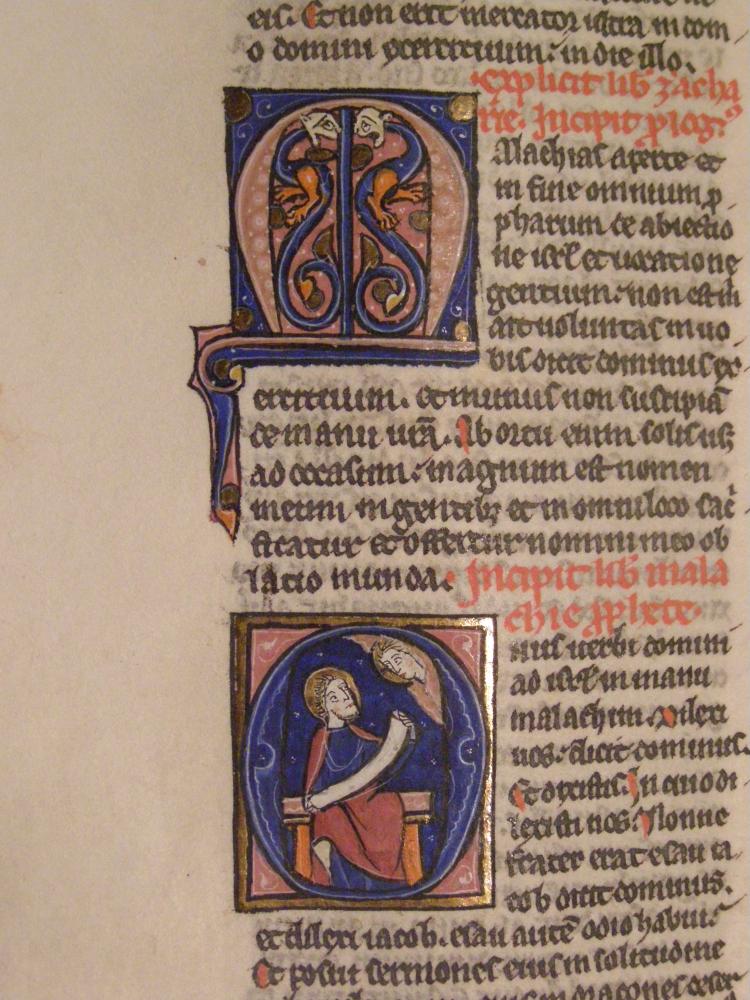 eis. Et non erit mercator ultra in dom
o domini exercituum: in die illo.
Explicit lib zacha
rie. Incipit plog.
Malachias aperte et
in fine omnium p
phetarum de abiectio
ne isrl et uocatione
gentium: non est m
ait uoluntas in uo
bis dicit dominus ex
ercituum. et munus non suscipiā
de manu urā. Ab ortu enim solis usq
ad occasum: magnum est nomen
meum in gentibz et in omni loco sac
ficatur et offertur nomini meo ob
latio munda. Incipit lib mala
chie pphete.
Onus uerbi domini
ad isrl in manu
malachim. Dilexi
uos: dicit dominus.
Et dixistis. In quo di
lexisti nos: Nonne
frater erat esau ia
cob dicit dominus.
et dilexi iacob. esau autē odio habui:
Et posui seir montes eius in solitudine